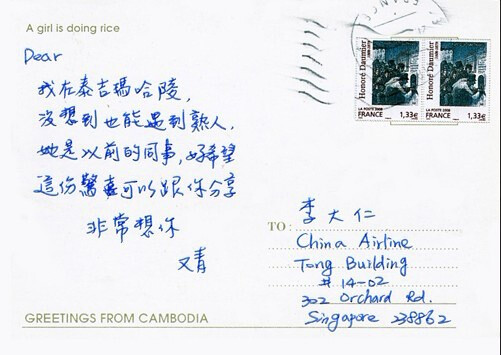 A girl is doing rice
Dear
我在泰吉瑪哈陵,
沒想到也能遇到熟人,
她是以前的同事,好希望
這份驚喜可以跟你分享
非常想你
又青
GREETINGS FROM CAMBODIA
Honoré Daumier
1808-1879
LA POSTE 2008
FRANCE 1,33€
Honoré Daumier
1808-1879
LA POSTE 2008
FRANCE 1,33€
TO: 李大仁
China Airline
Tong Building
# 14-02
302 Orchard Rd.
Singapore 238862